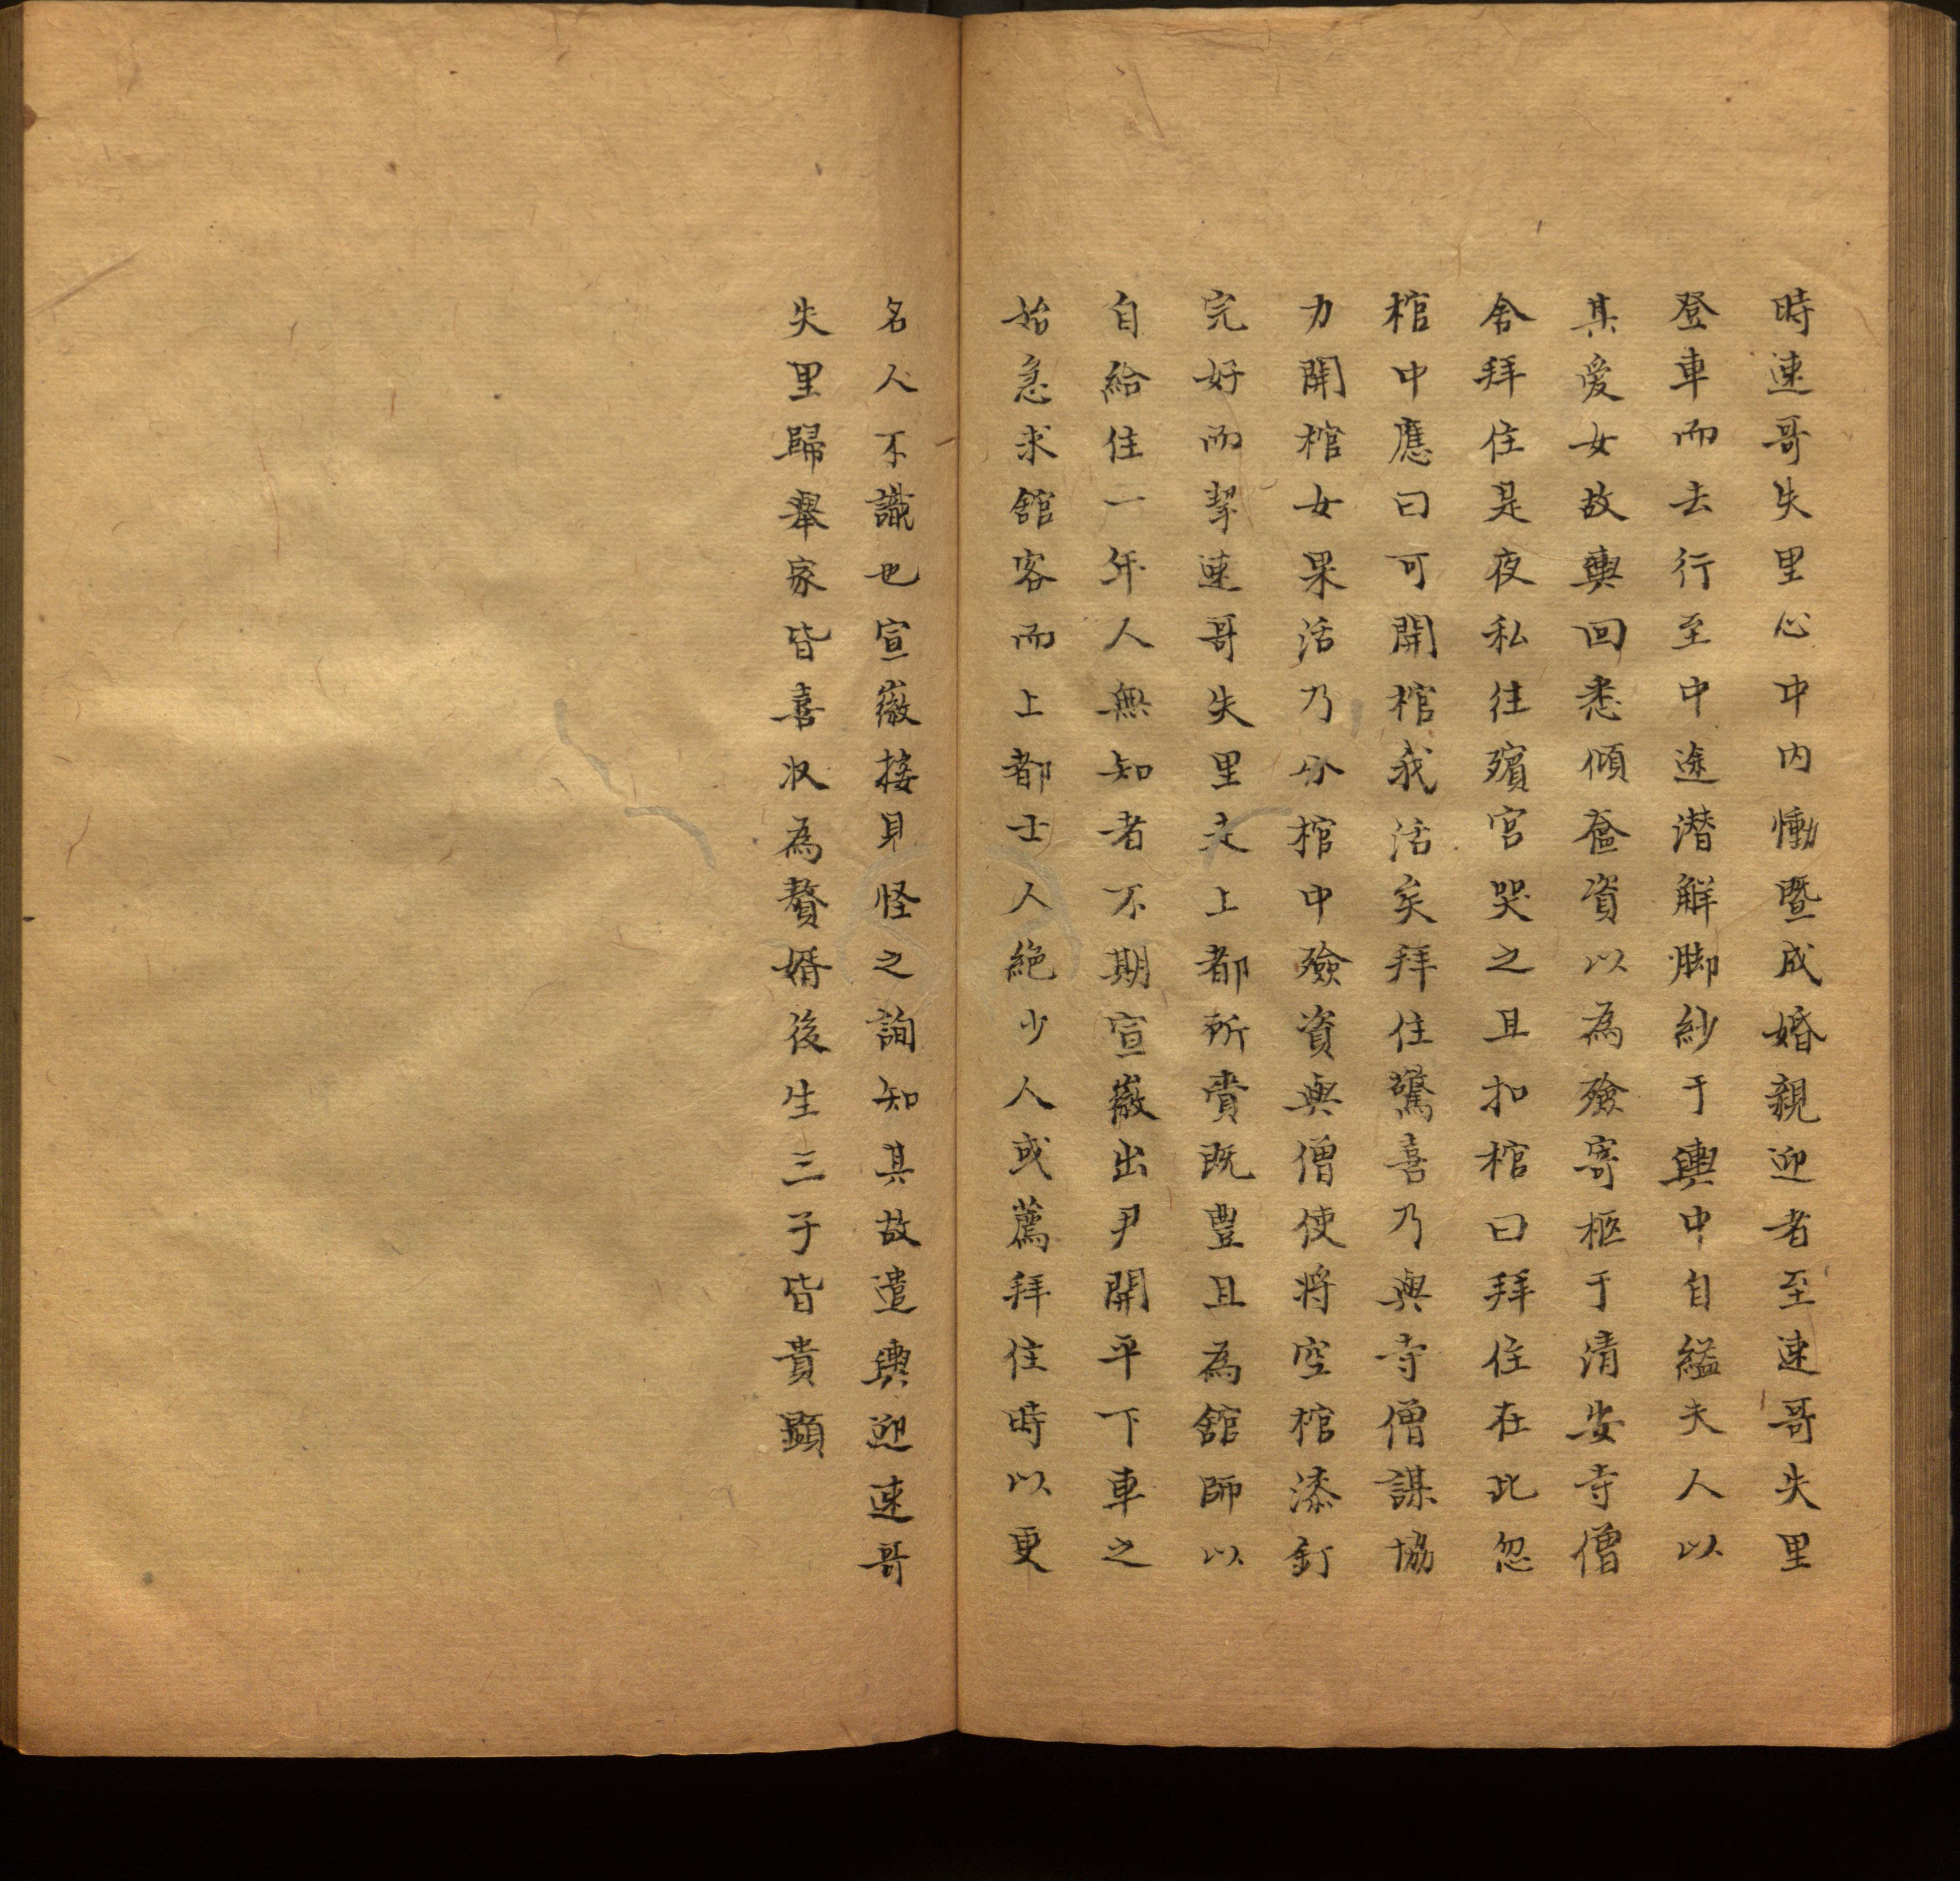 時速哥失里心中内慟暨成婚親迎者至速哥失里
登車而去行至中途潜解脚紗于輿中自縊夫人以
其愛女故輿回悉傾奩資以為殮寄柩于清安寺僧
舍拜住是夜私往殯宫哭之且扣棺曰拜住在此忽
棺中應曰可開棺我活矣拜住驚喜乃與寺僧謀協
力開棺女果活乃分棺中殮資與僧使将空棺漆釘
完好而挈速哥失里走上都所賞既豊且為舘師以
自給住一年人無知者不期宣徽出尹開平下車之
始急求舘客而上都士人絶少人或薦拜住時以更
名人不識也宣徽接見怪之詢知其故遣輿迎速哥
失里歸舉家皆喜収為贅婿後生三子皆貴顯